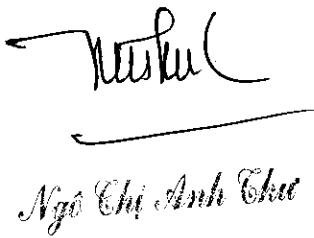 Ngô Thị Anh Thư